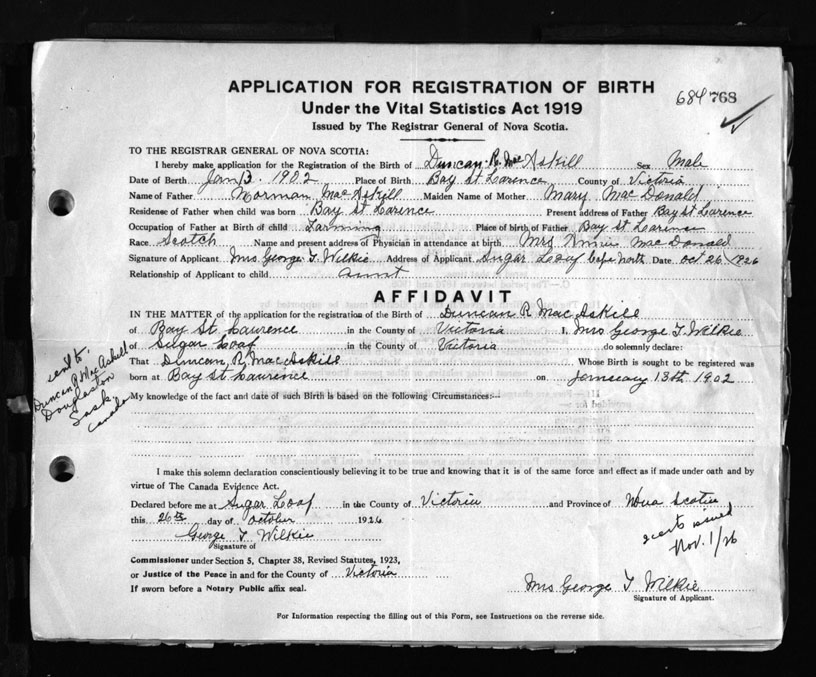 APPLICATION FOR REGISTRATION OF BIRTH
684 768
Under the Vital Statistics Act 1919
Issued by The Registrar General of Nova Scotia.
TO THE REGISTRAR GENERAL OF NOVA SCOTIA:
I hereby make application for the Registration of the Birth of Duncan R. MacAskill Sex Male
Date of Birth Jan 13. 1902 Place of Birth Bay St Larence County of Victoria
Name of Father Norman MacAskill Maiden Name of Mother Mary MacDonald
Residense of Father when child was born Bay St Larence Present address of Father Bay St Larence
Occupation of Father at Birth of child Farming Place of birth of Father Bay St Larence
Race Scotch Name and present address of Physician in attendance at birth Mrs MacDonald
Signature of Applicant Mrs George T Wilkie Address of Applicant Sugar Loaf Cape North Date Oct 26 1926
Relationship of Applicant to child aunt
AFFIDAVIT
IN THE MATTER of the application for the registration of the Birth of Duncan R MacAskill
of Bay St Laurence in the County of Victoria I, Mrs George T Wilkie
of Sugar Loaf in the County of Victoria do solemnly declare:
That Duncan R MacAskill Whose Birth is sought to be registered was
born at Bay St Laurence on January 13th 1902
sent to.
Duncan R MacAskill
Douglaston
Sask
Canada
My knowledge of the fact and date of such Birth is based on the following Circumstances:—
I make this solemn declaration conscientiously believing it to be true and knowing that it is of the same force and effect as if made under oath and by
virtue of The Canada Evidence Act.
Declared before me at Sugar Loaf in the County of Victoria and Province of Nova Scotia
this 26th day of October 1926
George T Wilkie
Signature of
issued
Nov. 1/26
Commissioner under Section 5, Chapter 38, Revised Statutes, 1923,
or Justice of the Peace in and for the County of Victoria
If sworn before a Notary Public affix seal.
Mrs George T Wilkie
Signature of Applicant.
For Information respecting the filling out of this Form, see Instructions on the reverse side.